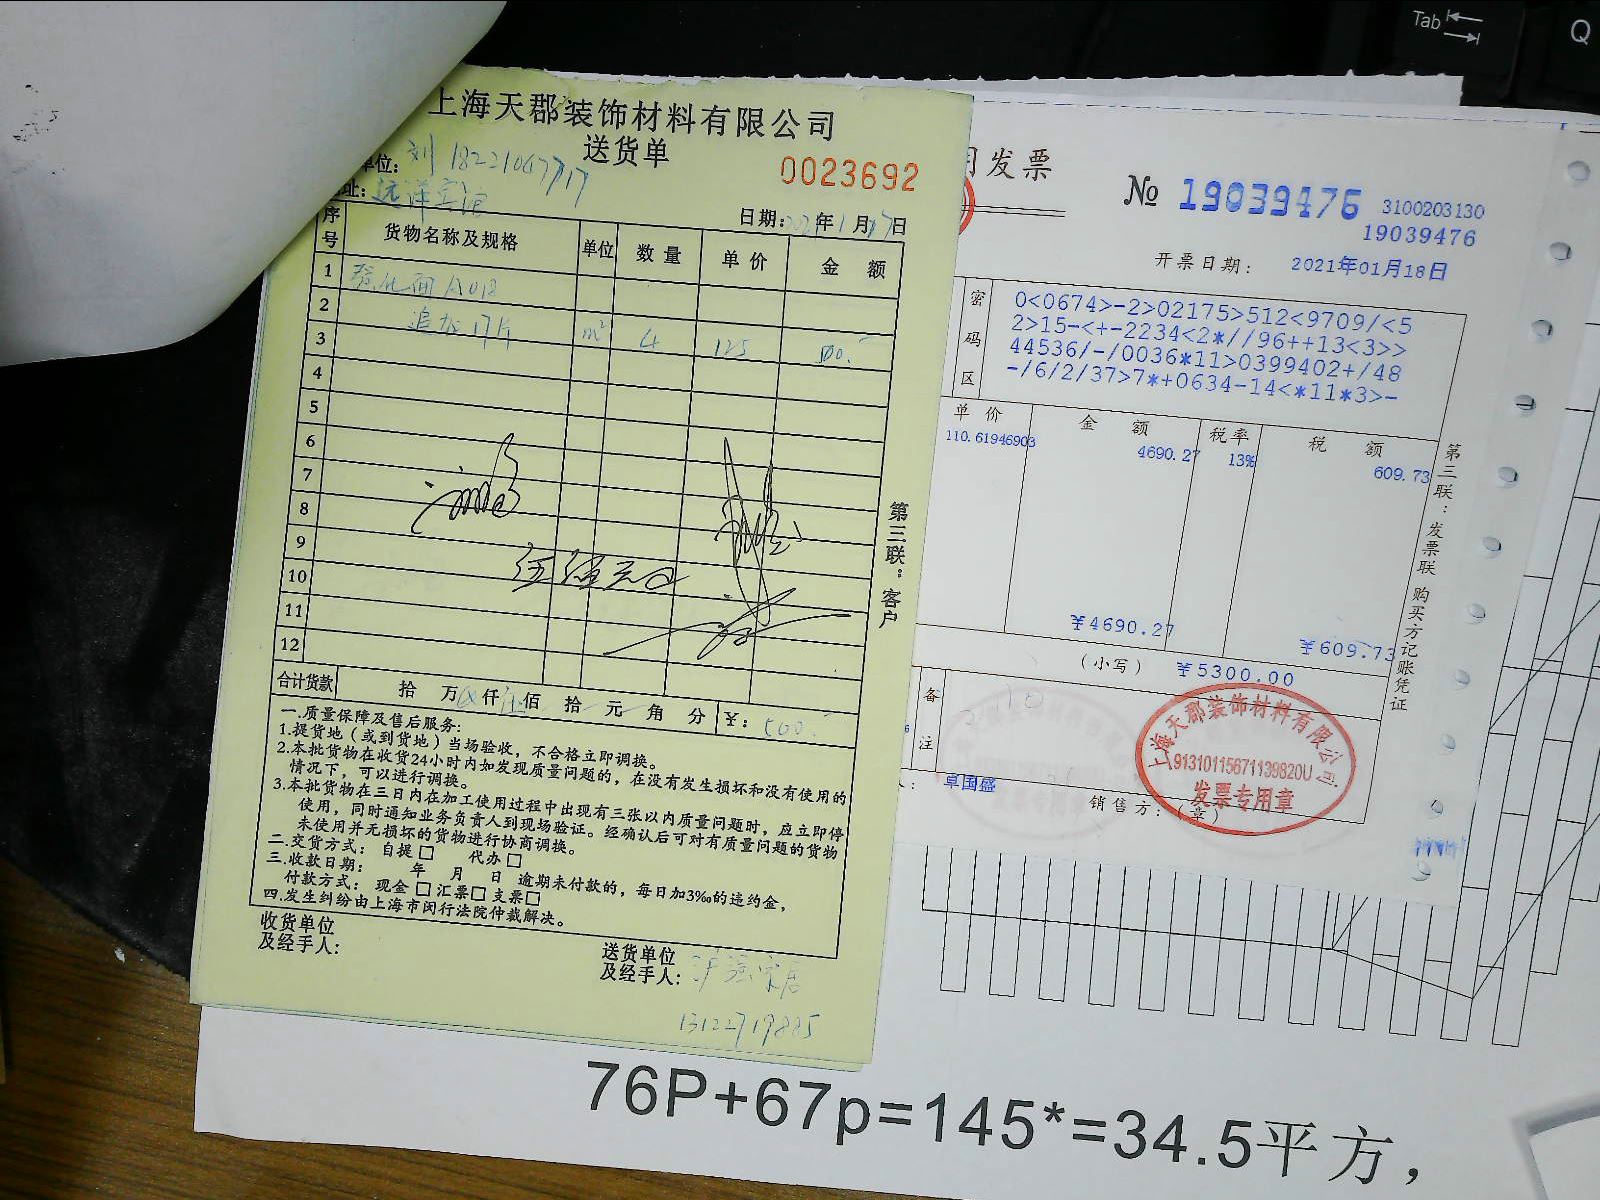 上海天郡装饰材料有限公司
送货单
0023692
单位: 刘 18221067717
址: 远洋宾馆
日期: 2021年1月17日
序号 货物名称及规格 单位 数量 单价 金额
1
A018
2
追加17片
3 m² 4 125 500.
4
5
6
7
8
9
10
11
12
合计货款 拾 万 仟 伍佰 拾 元 角 分 ¥: 500.
一.质量保障及售后服务:
1.提货地（或到货地）当场验收，不合格立即调换。
2.本批货物在收货24小时内如发现质量问题的，在没有发生损坏和没有使用的
情况下，可以进行调换。
3.本批货物在三日内在加工使用过程中出现有三张以内质量问题时，应立即停
使用，同时通知业务负责人到现场验证。经确认后可对有质量问题的货物
未使用并无损坏的货物进行协商调换。
二.交货方式: 自提□ 代办□
三.收款日期: 年 月 日 逾期未付款的，每日加3‰的违约金，
付款方式: 现金□汇票□支票□
四.发生纠纷由上海市闵行法院仲裁解决。
收货单位
及经手人:
送货单位
及经手人:
13122719885
第三联：客户
用发票
№ 19039476
3100203130
19039476
开票日期: 2021年01月18日
密码区
0<0674>-2>02175>512<9709/<5
2>15-<+-2234<2*//96++13<3>>
44536/-/0036*11>0399402+/48
-/6/2/37>7*+0634-14<*11*3>-
单价 金额 税率 税额
110.61946903 4690.27 13% 609.73
¥4690.27 ¥609.73
(小写) ¥5300.00
备注
人: 卓国盛
销售方:(章)
上海天郡装饰材料有限公司
91310115671139820U
发票专用章
第三联：发票联 购买方记账凭证
76P+67p=145*=34.5平方，